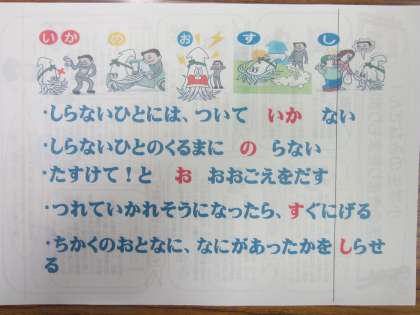 いかのおすし
・しらないひとには、ついて いか ない
・しらないひとのくるまに の らない
・たすけて!と お おおごえをだす
・つれていかれそうになったら、すぐにげる
・ちかくのおとなに、なにがあったかをしらせ
る